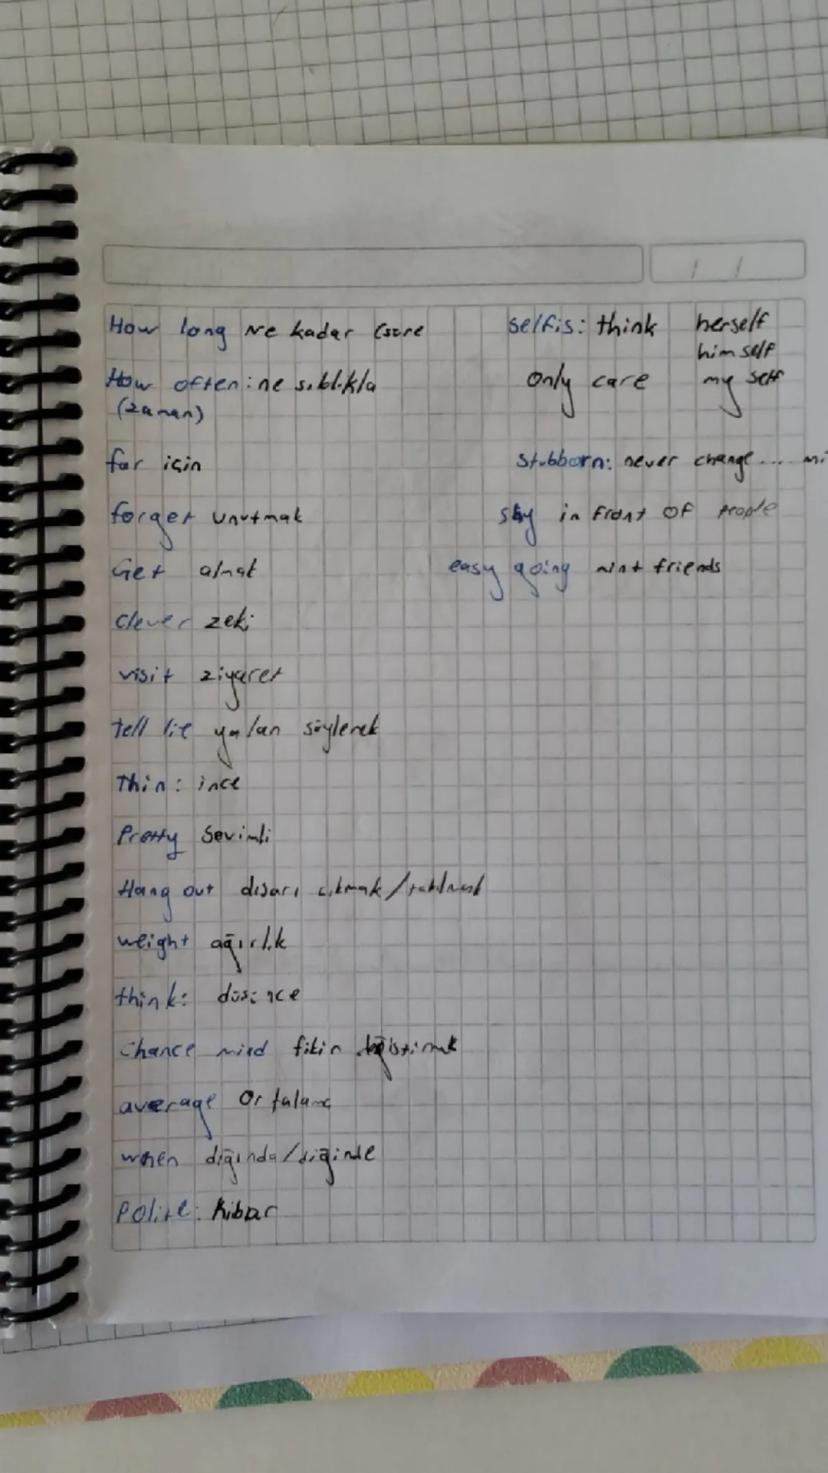 How long ne kadar (süre
How often: ne sıklıkla
(zaman)
for için
forget unutmak
Get almak
clever zeki
visit ziyaret
tell lie yalan söylemek
Thin: ince
Pretty Sevimli
Hang out dışarı çıkmak/
weight ağırlık
think: düşünce
chance mind fikir değiştirmek
average Ortalama
when dığında/diğinde
Polite: Kibar
selfis: think herself
himself
only care my self
Stubborn: never change...
shy in front of people
easy going friends